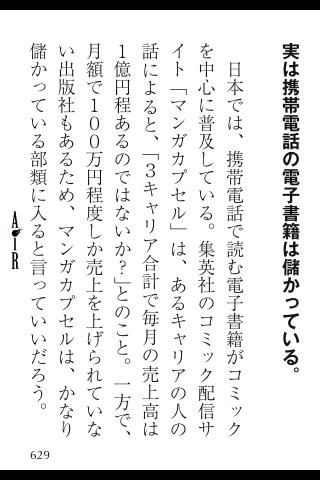 実は携帯電話の電子書籍は儲かっている。
　日本では、携帯電話で読む電子書籍がコミック
を中心に普及している。集英社のコミック配信サ
イト「マンガカプセル」は、あるキャリアの人の
話によると、「３キャリア合計で毎月の売上高は
１億円程あるのではないか？」とのこと。一方で、
月額で１００万円程度しか売上を上げられていな
い出版社もあるため、マンガカプセルは、かなり
儲かっている部類に入ると言っていいだろう。
AiR
629